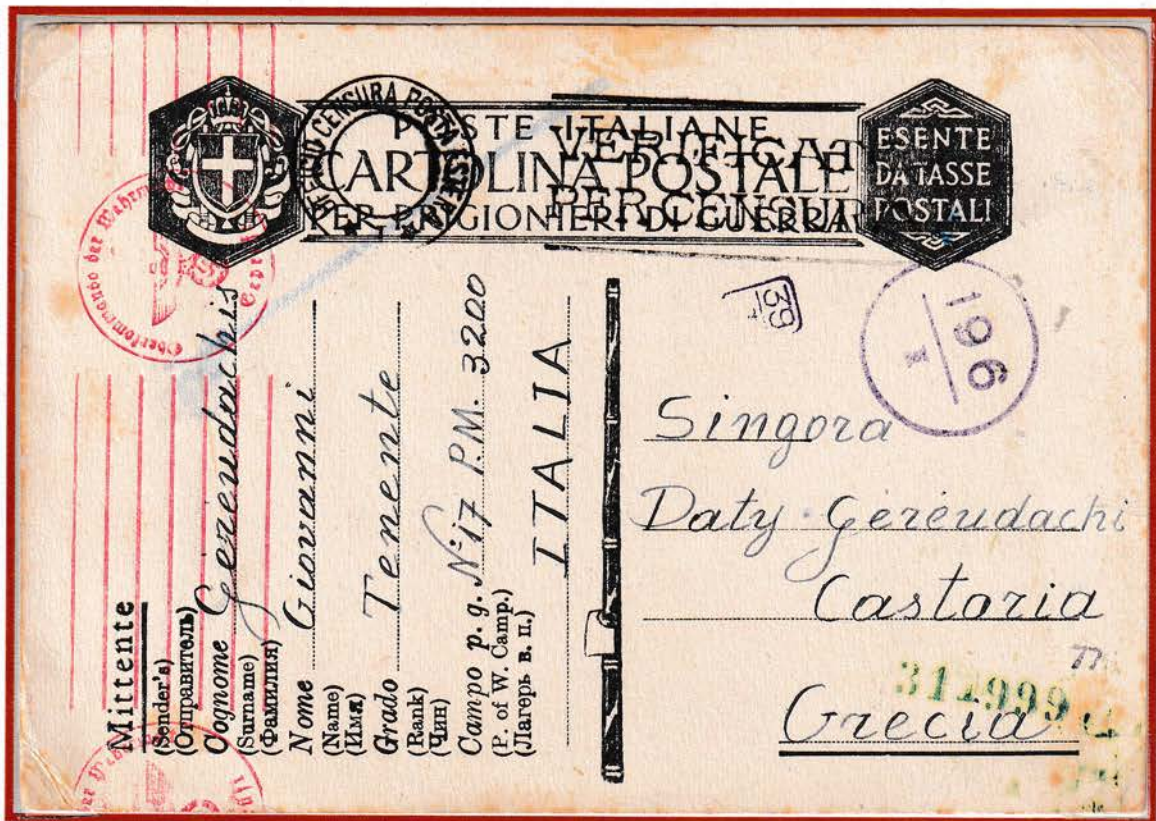 POSTE ITALIANE
CARTOLINA POSTALE
PER PRIGIONIERI DI GUERRA
ESENTE
DA TASSE
POSTALI
UFFICIO CENSURA POSTA ESTERA
VERIFICAT
PER CENSUR
Oberkommando der Wehrm
39
196
I
Mittente
(Sender's)
(Отправитель)
Cognome Gereudachis
(Surname)
(Фамилия)
Nome Giovanni
(Name)
(Имя)
Grado Tenente
(Rank)
(Чин)
Campo p. g. N:17 P.M. 3200
(P. of W. Camp.)
(Лагерь в. п.)
ITALIA
Singora
Daty Géréudachi
Castoria
Grecia